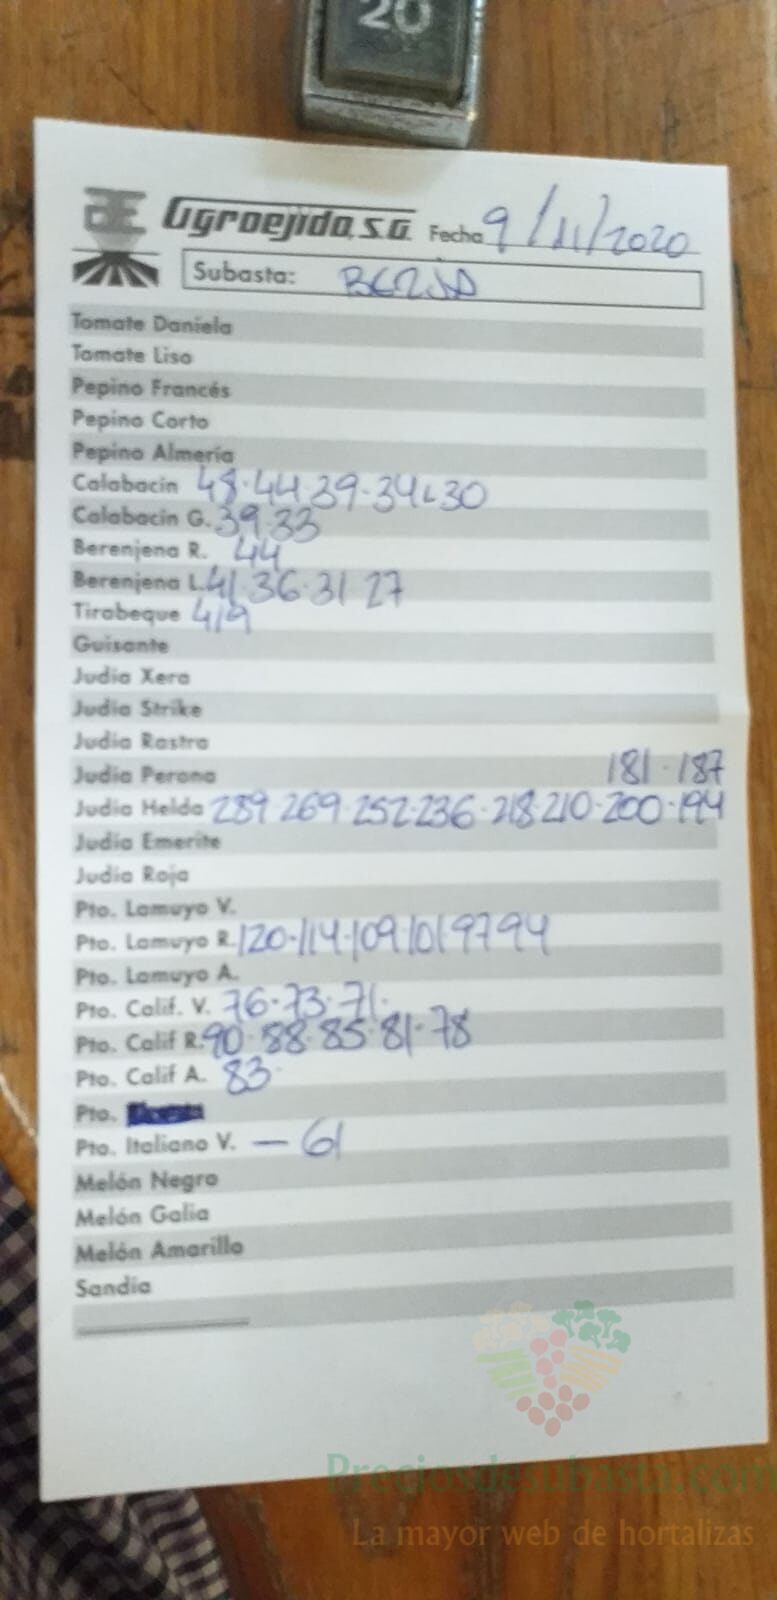 20
Agroejido, S.A. Fecha 9/11/2020
Subasta: BERJA
Tomate Daniela
Tomate Liso
Pepino Francés
Pepino Corto
Pepino Almería
Calabacin 48·44·39·34·30
Calabacin G. 39·33
Berenjena R. 44
Berenjena L. 41·36·31 27
Tirabeque 419
Guisante
Judia Xera
Judia Strike
Judia Rastra
Judia Perona 181·187
Judia Helda 289 269·252·236·218·210·200·194
Judia Emerite
Judia Roja
Pto. Lamuyo V.
Pto. Lamuyo R. 120·114·109 101 97 94
Pto. Lamuyo A.
Pto. Calif. V. 76·73·71·
Pto. Calif R. 90·88·85·81·78
Pto. Calif A. 83·
Pto.
Pto. Italiano V. — 61
Melón Negro
Melón Galia
Melón Amarillo
Sandia
Preciosdesubasta.com
La mayor web de hortalizas